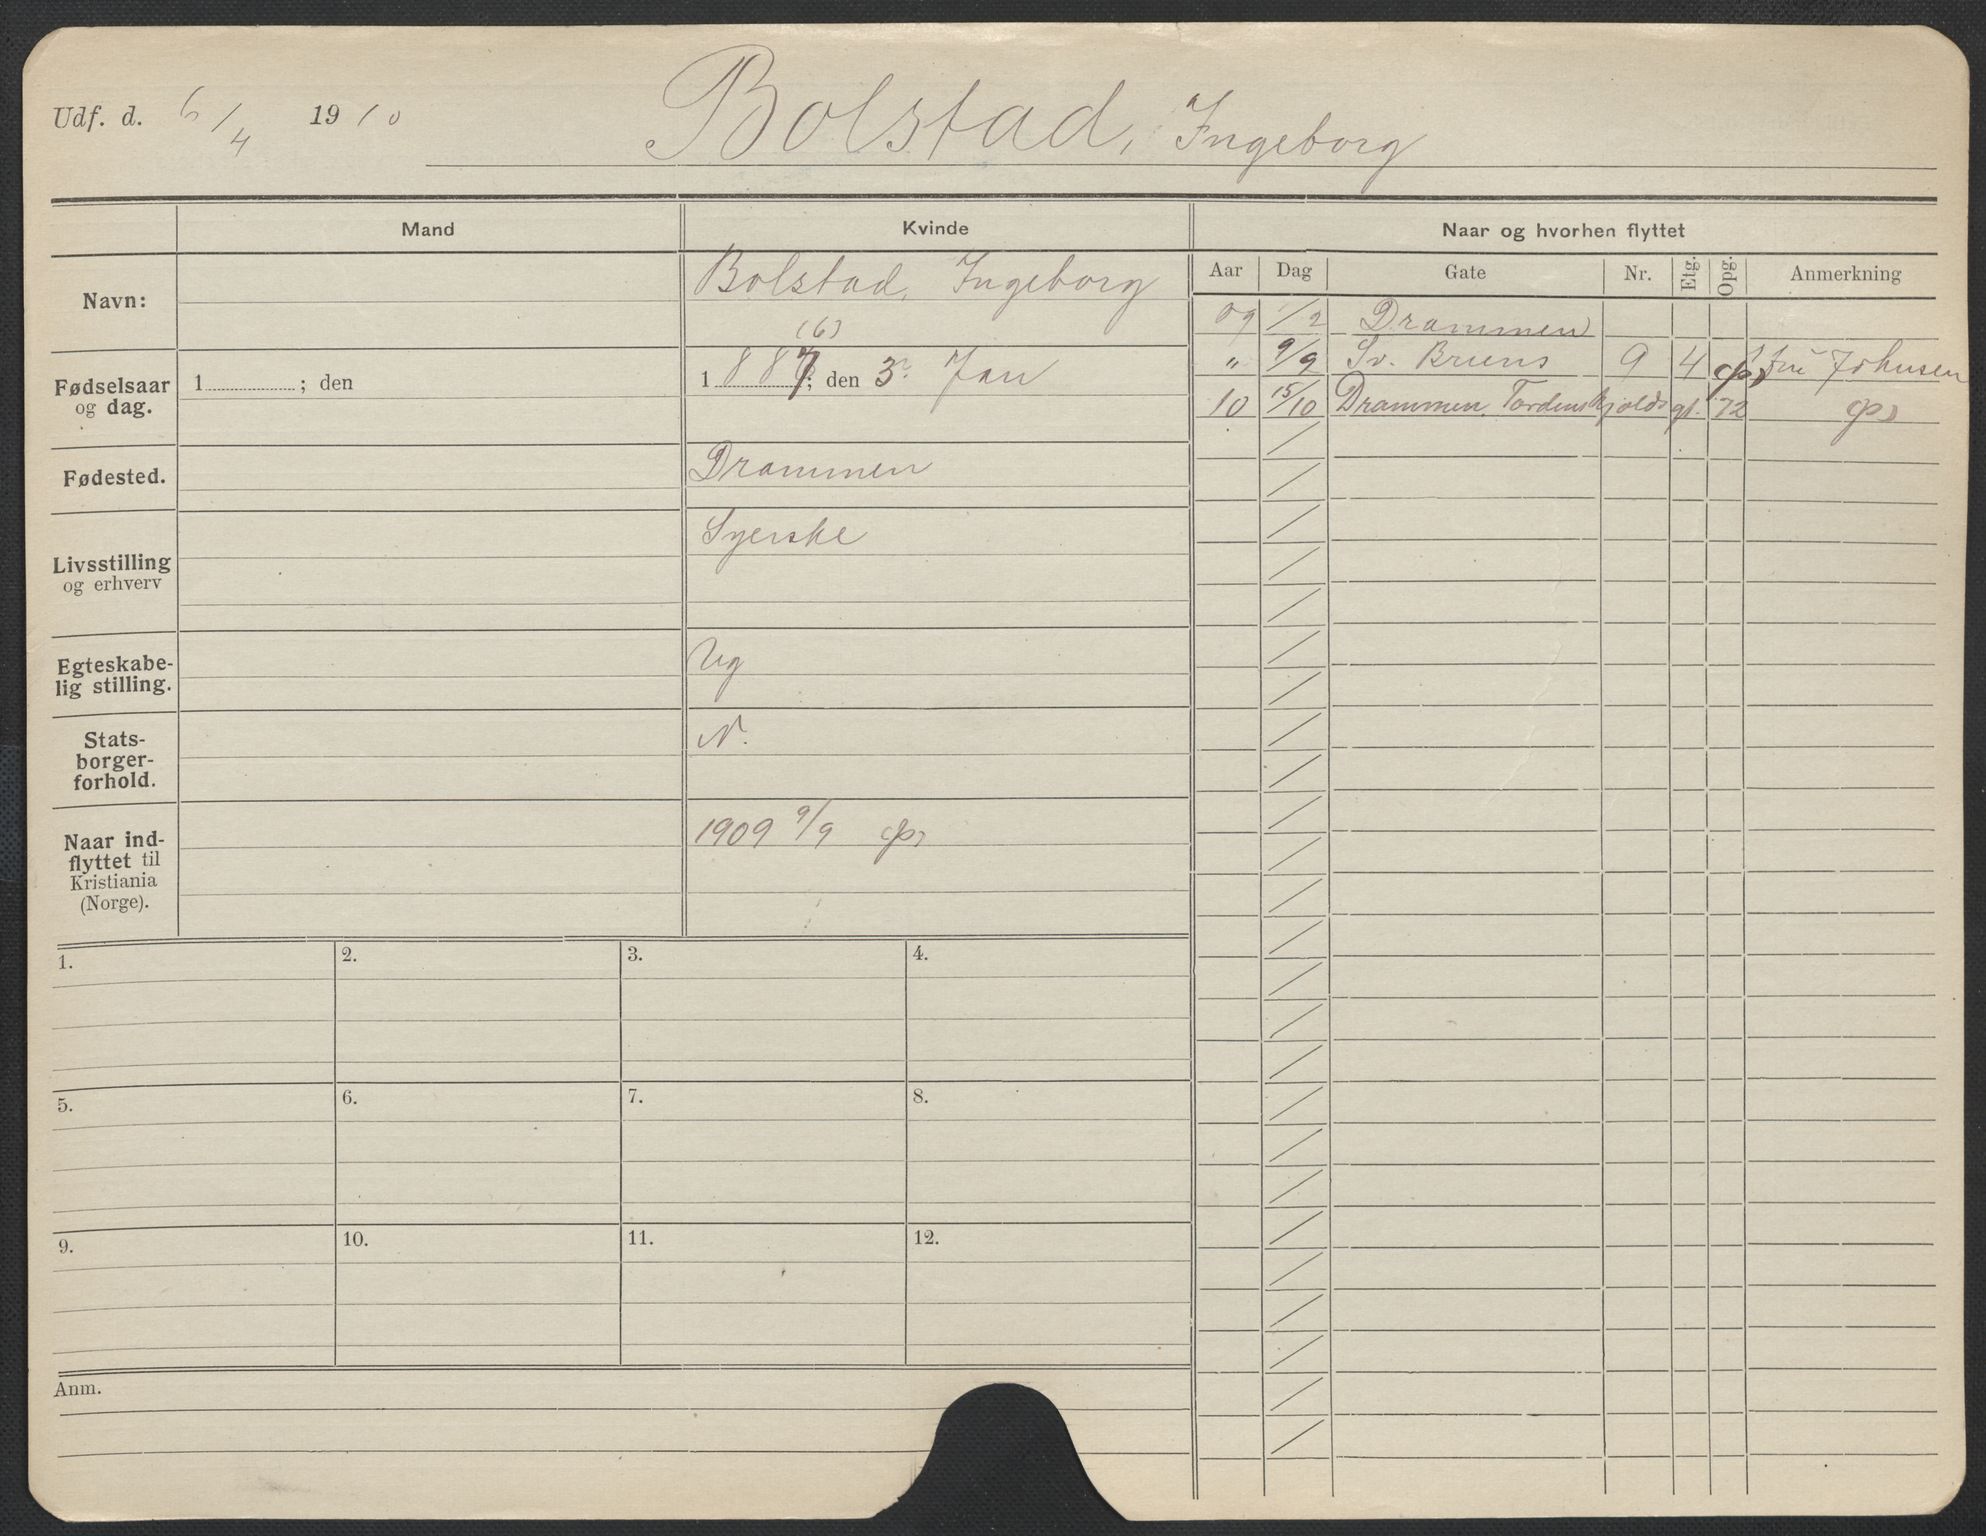 Udf. d. 6/4 1910 Bolstad, Ingeborg
Mand Kvinde Naar og hvorhen flyttet
Aar Dag Gate Nr. Etg. Opg. Anmerkning
Navn: Bolstad, Ingeborg
09 1/2 Drammen
" 9/9 Sv. Bruns 9 4 Johnsen
10 15/10 Drammen, Tordenskjolds gt. 72
(6)
Fødselsaar
og dag.
1 ; den
1887; den 3. Jan
Fødested. Drammen
Livsstilling
og erhverv
Syerske
Egteskabe-
lig stilling.
Ug
Stats-
borger-
forhold.
N.
Naar ind-
flyttet til
Kristiania
(Norge).
1909 9/9
1. 2. 3. 4.
5. 6. 7. 8.
9. 10. 11. 12.
Anm.